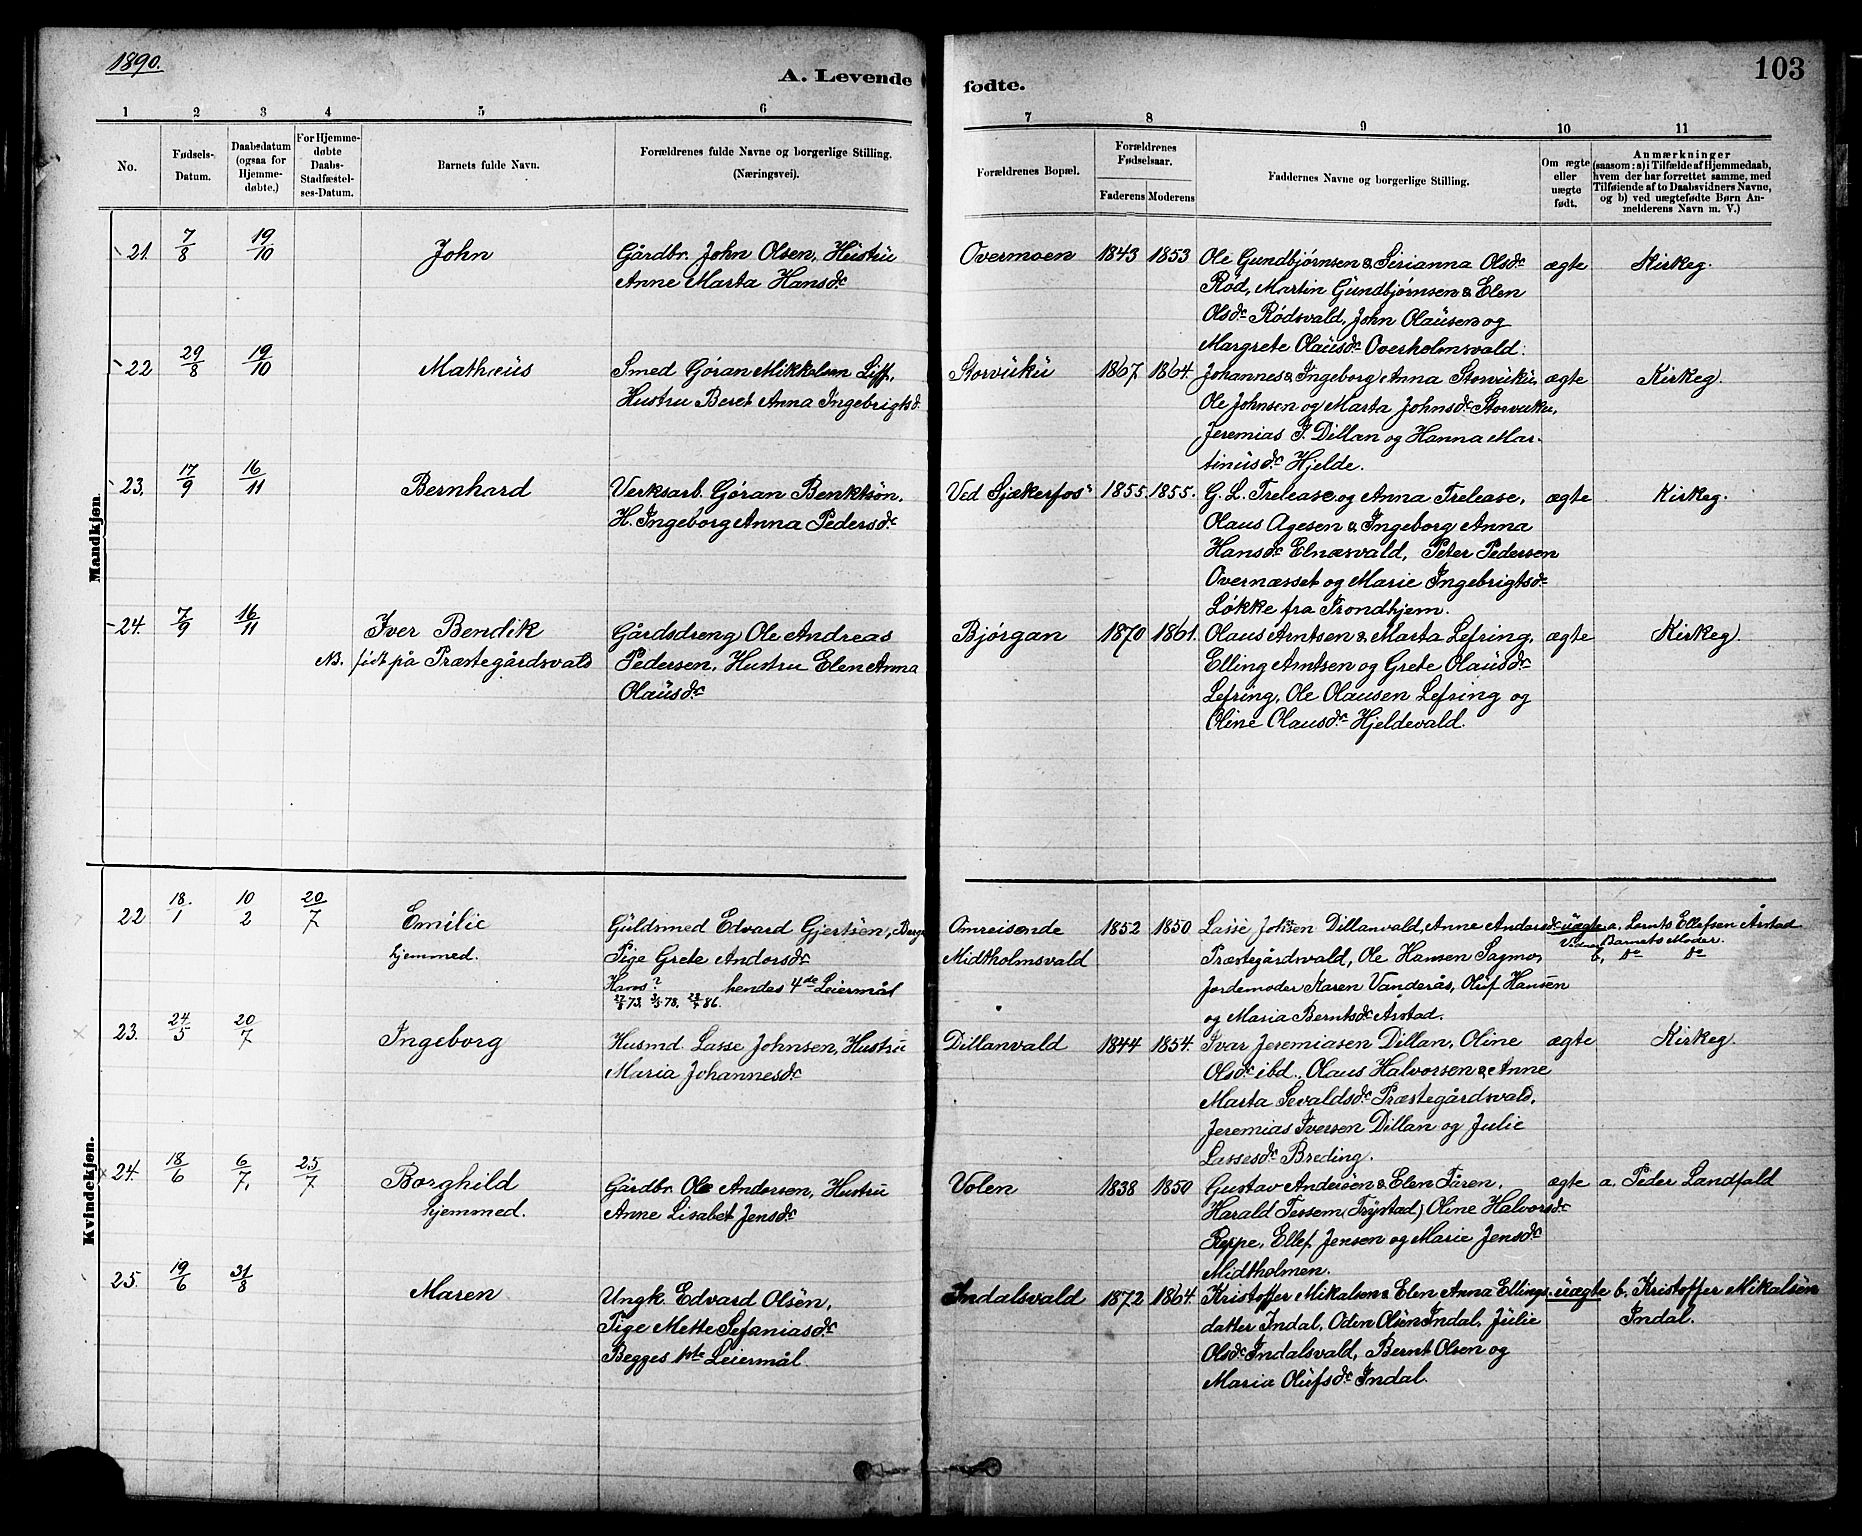 1890.
A. Levende
fødte.
103
1 2 3 4 5 6 7 8 9 10 11
No.
Fødsels-Datum.
Daabsdatum (ogsaa for Hjemme-døbte.)
For Hjemme-døbte Daabs-Stadfæstel-ses-Datum.
Barnets fulde Navn.
Forældrenes fulde Navne og borgerlige Stilling. (Næringsvei).
Forældrenes Bopæl.
Forældrenes Fødselsaar.
Faderens Moderens
Faddernes Navne og borgerlige Stilling.
Om ægte eller uægte født.
Anmærkninger
(saasom: a) i Tilfælde af Hjemmedaab,
hvem der har forrettet samme, med
Tilføiende af to Daabsvidners Navne,
og b) ved uægtefødte Børn An-
melderens Navn m. V.)
Mandkjøn.
21. 7/8 19/10 John
Gårdbr. John Olsen, Hustru
Anne Marta Hansdr
Overmoen 1843 1853
Ole Gundbjørnsen & Sirianna Olsdr
Rød, Martin Gundbjørnsen & Elen
Olsdr Rødsvald, John Olausen og
Margrete Olausdr Overholmsvald.
ægte Kirkeg.
22 29/8 19/10 Matheus
Smed Göran Mikkelsen Liff,
Hustru Beret Anna Ingebrigtsd.
Storvuku 1867 1864.
Johannes & Ingeborg Anna Storvuku,
Ole Johnsen og Marta Johnsdr Storvuku,
Jeremias I. Dillan og Hanna Mar-
tinusdr Hjelde.
ægte Kirkeg.
23. 17/9 16/11 Bernhard
Verksarb. Göran Benktsön,
H. Ingeborg Anna Pedersdr
Ved Sjækerfos 1855. 1855.
G. L. Trelease og Anna Trelease,
Olaus Agesen & Ingeborg Anna
Hansdr Elnæsvald, Peter Pedersen
Overnæsset og Marie Ingebrigtsdr
Løkke fra Trondhjem.
ægte Kirkeg.
24. 7/9 16/11 Iver Bendik
NB. født på Præstegårdsvald
Gårdsdreng Ole Andreas
Pedersen, Hustru Elen Anna
Olausdr
Bjørgan 1870 1861.
Olaus Arntsen & Marta Lefring,
Elling Arntsen og Grete Olausdr
Lefring, Ole Olausen Lefring og
Oline Olausdr Hjeldevald.
ægte Kirkeg.
Kvindekjøn.
22 18/1 10/2 20/7 Emilie
hjemmed.
Guldsmed Edvard Gjertsen,
Pige Grete Andorsdr
hendes 4de Leiermål
Omreisende
Midtholmsvald
1852 1850
Lasse Johsen Dillanvald, Anne Andersdr
Præstegårdsvald, Ole Hansen Sagmo,
Jordemoder Karen Vanderås, Oluf Hansen
og Maria Berntsdr Årstad.
uægte a. Lornts Ellefsen Årstad
Barnets Moder.
b. do do
23. 24/5 20/7 Ingeborg
Husmd. Lasse Johnsen, Hustru
Maria Johannesdr
Dillanvald 1844 1854.
Ivar Jeremiasen Dillan, Oline
Olsdr ibd., Olaus Halvorsen & Anne
Marta Sevaldsdr Præstegårdsvald,
Jeremias Iversen Dillan og Julie
Lassesdr Breding.
ægte Kirkeg.
24. 18/6 6/7. 25/7 Borghild
hjemmed.
Gårdbr. Ole Andersen, Hustru
Anne Lisabet Jensdr
Volen 1838 1850
Gustav Andersen & Elen Færen,
Harald Tessem (Trystad) Oline Halvorsdr
Reppe, Ellef Jensen og Marie Jensdr
Midtholmen.
ægte a. Peder Landfald
25. 19/6 31/8 Maren
Ungk. Edvard Olsen,
Pige Mette Sefaniasdr
Begges 1ste Leiermål
Indalsvald 1872 1864.
Kristoffer Mikalsen & Elen Anna Ellings-
datter Indal, Oden Olsen Indal, Julie
Olsdr Indalsvald, Bernt Olsen og
Maria Olufsdr Indal.
uægte b. Kristoffer Mikalsen
Indal.